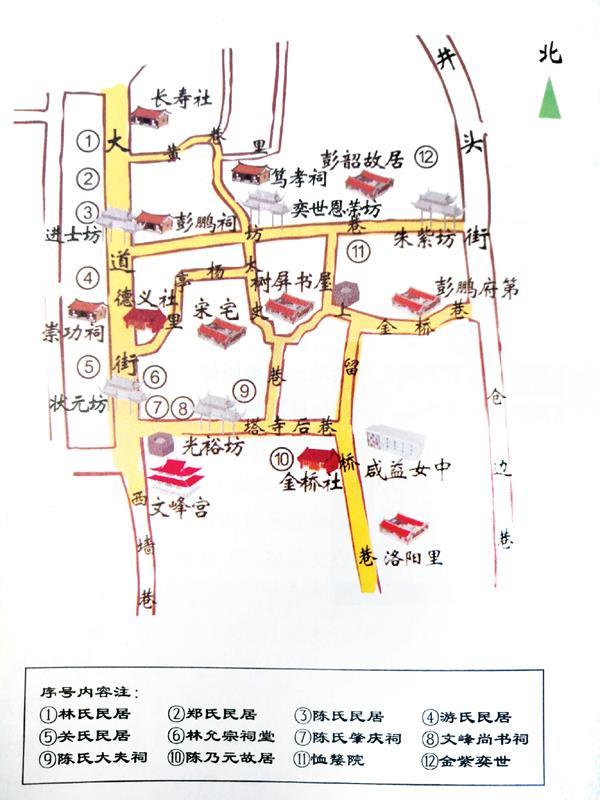 北
井头街
长寿社
大道街
①
黄巷里
②
笃孝祠
彭韶故居
⑫
③
进士坊
彭鹏祠
奕世恩荣坊
坊巷
朱紫坊
⑪
④
崇功祠
德义社
享杨里
宋宅
太史巷
树屏书屋
彭鹏府第
上留桥巷
金桥巷
⑤
状元坊
⑥
⑦
⑧
⑨
光裕坊
塔寺后巷
⑩
金桥社
咸益女中
仓边巷
文峰宫
西墙巷
洛阳里
序号内容注：
①林氏民居 ②郑氏民居 ③陈氏民居 ④游氏民居
⑤关氏民居 ⑥林允宗祠堂 ⑦陈氏肇庆祠 ⑧文峰尚书祠
⑨陈氏大夫祠 ⑩陈乃元故居 ⑪恤嫠院 ⑫金紫奕世